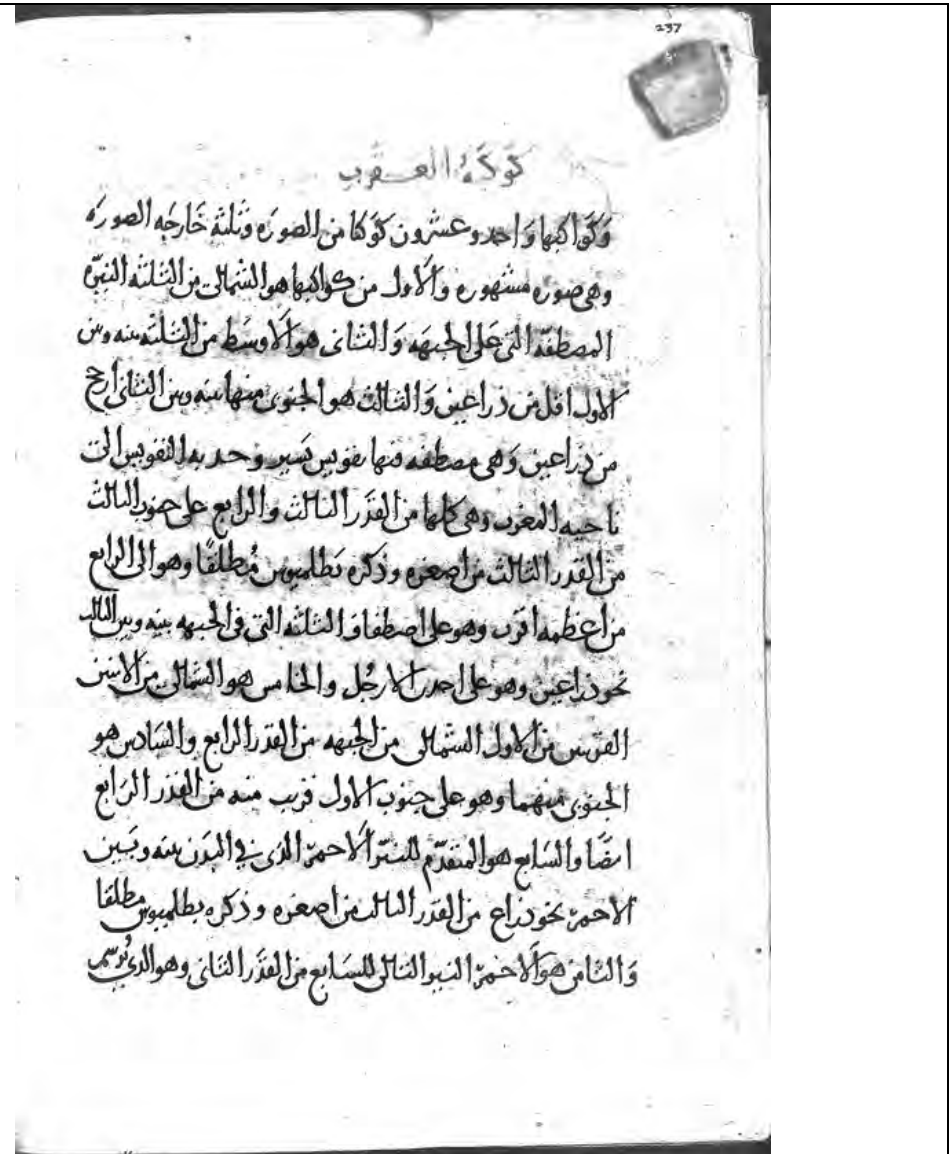 237
كوكبة العقرب
وكواكبها واحد وعشرون كوكبا من الصوره وثلثه خارجه الصوره
وهى صوره مشهوره والاول من كواكبها هو الشمالى من الثلثه النيره
المصطفه التى على الجبهه والثانى هو الاوسط من الثلثه بينه وبين
الاول اقل من ذراعين والثالث هو الجنوبى منها بينه وبين الثانى ارجح
من ذراعين وهى مصطفه فيها تقويس يسير وحدبه التقويس الى
ناحيه المغرب وهى كلها من القدر الثالث والرابع على جنوب الثالث
من القدر الثالث من اصغره وذكره بطلميوس مطلقا وهو الى الرابع
من اعظمه اقرب وهو على اصطفاف الثلثه التى فى الجبهه بينه وبين الثالث
نحو ذراعين وهو على احدى الارجل والخامس هو الشمالى من الاثنين
القريبين من الاول الشمالى من الجبهه من القدر الرابع والسادس هو
الجنوبى منهما وهو على جنوب الاول قريب منه من القدر الرابع
ايضا والسابع هو المتقدم للنير الاحمر الذى فى البدن بينه وبين
الاحمر نحو ذراع من القدر الثالث من اصغره وذكره بطلميوس مطلقا
والثامن هو الاحمر النير التالى للسابع من القدر الثانى وهو الذى يرسم